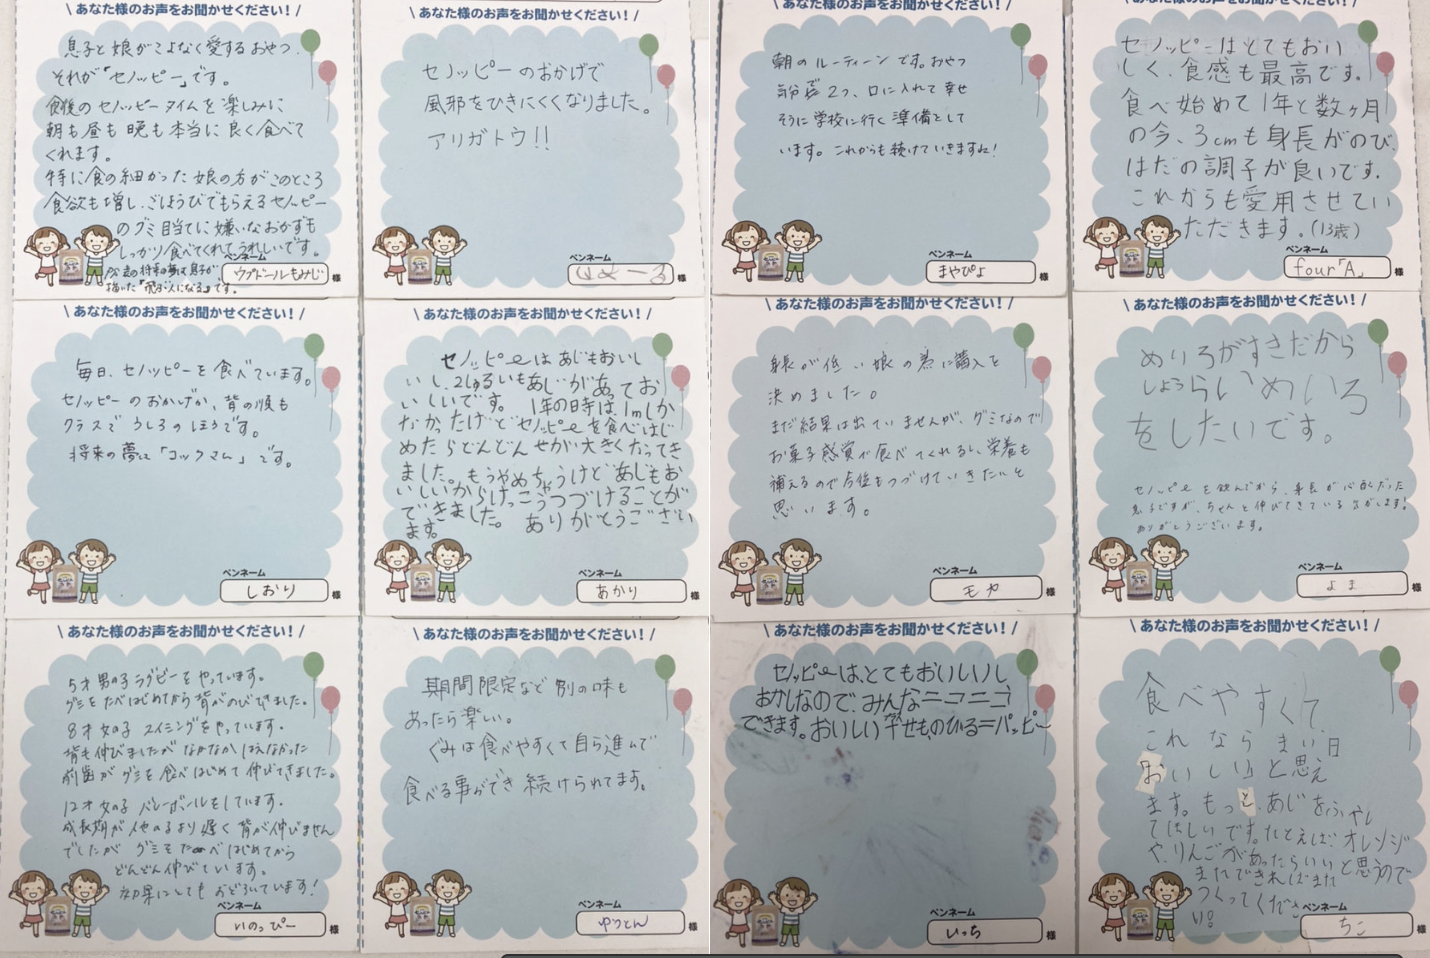 \ あなた様のお声をお聞かせください! /
息子と娘がこよなく愛するおやつ、
それが「セノッピー」です。
食後のセノッピータイムを楽しみに
朝も昼も晩も本当に良く食べて
くれます。
特に食の細かった娘の方がこのところ
食欲も増し、ごほうびでもらえるセノッピー
のグミ目当てに嫌いなおかずも
しっかり食べてくれてうれしいです。
将来の夢は息子が
描いた「飛行人になる」です。
ペンネーム
ウプドールもみじ 様
\ あなた様のお声をお聞かせください! /
セノッピーのおかげで
風邪をひきにくくなりました。
アリガトウ!!
ペンネーム
ゆめーる 様
\ あなた様のお声をお聞かせください! /
朝のルーティーンです。おやつ
2つ、口に入れて幸せ
そうに学校に行く準備をして
います。これからも続けていきますね!
ペンネーム
まやぴよ 様
\ あなた様のお声をお聞かせください! /
セノッピーはとてもおい
しく、食感も最高です。
食べ始めて1年と数ヶ月
の今、3cmも身長がのび、
はだの調子が良いです。
これからも愛用させてい
ただきます。(13歳)
ペンネーム
four「A」 様
\ あなた様のお声をお聞かせください! /
毎日、セノッピーを食べています。
セノッピーのおかげか、背の順も
クラスでうしろのほうです。
将来の夢は「コックさん」です。
ペンネーム
しおり 様
\ あなた様のお声をお聞かせください! /
セノッピーはあじもおいし
いし、2しゅるいもあじがあってお
いしいです。1年の日寺は1mしか
なかったけどセノッピーを食べはじ
めたらどんどんせが大きくなってき
ました。もうやめちゃうけどあじもお
いしいからけっこうつづけることが
できました。ありがとうござい
ます。
ペンネーム
あかり 様
\ あなた様のお声をお聞かせください! /
身長が低い娘の為に購入を
決めました。
まだ結果は出ていませんが、グミなので
お菓子感覚で食べてくれるし、栄養も
補えるので今後もつづけていきたいと
思います。
ペンネーム
モカ 様
\ あなた様のお声をお聞かせください! /
めいろがすきだから
しょうらいめいろ
をしたいです。
セノッピーを飲んだから、身長が心配だった
息子ですが、ちゃんと伸びてきている気がします!
ありがとうございます。
ペンネーム
よま 様
\ あなた様のお声をお聞かせください! /
5才男の子ラグビーをやっています。
グミをたべはじめてから背がのびてきました。
8才女の子スイミングをやっています。
背も伸びましたがなかなかはえなかった
前歯がグミを食べはじめて伸びてきました。
12才女の子バレーボールをしています。
成長期が他の子より遅く背が伸びません
でしたがグミをたべはじめてから
どんどん伸びています。
効果にとてもおどろいています!
ペンネーム
いのっぴー 様
\ あなた様のお声をお聞かせください! /
期間限定など別の味も
あったら楽しい。
ぐみは食べやすくて自ら進んで
食べる事ができ続けられてます。
ペンネーム
ゆうとん 様
\ あなた様のお声をお聞かせください! /
セノッピーは、とてもおいしいし
おかしなので、みんなニコニコ
できます。おいしい+幸せ+ものびる=ハッピー
ペンネーム
いっち 様
\ あなた様のお声をお聞かせください! /
食べやすくて
これならまい日
おいしいと思え
ます。もっと、あじをふやし
てほしいです。たとえば、オレンジ
や、りんごがあったらいいと思うので
またできればまた
つくってくださ
い。
ペンネーム
ちこ 様